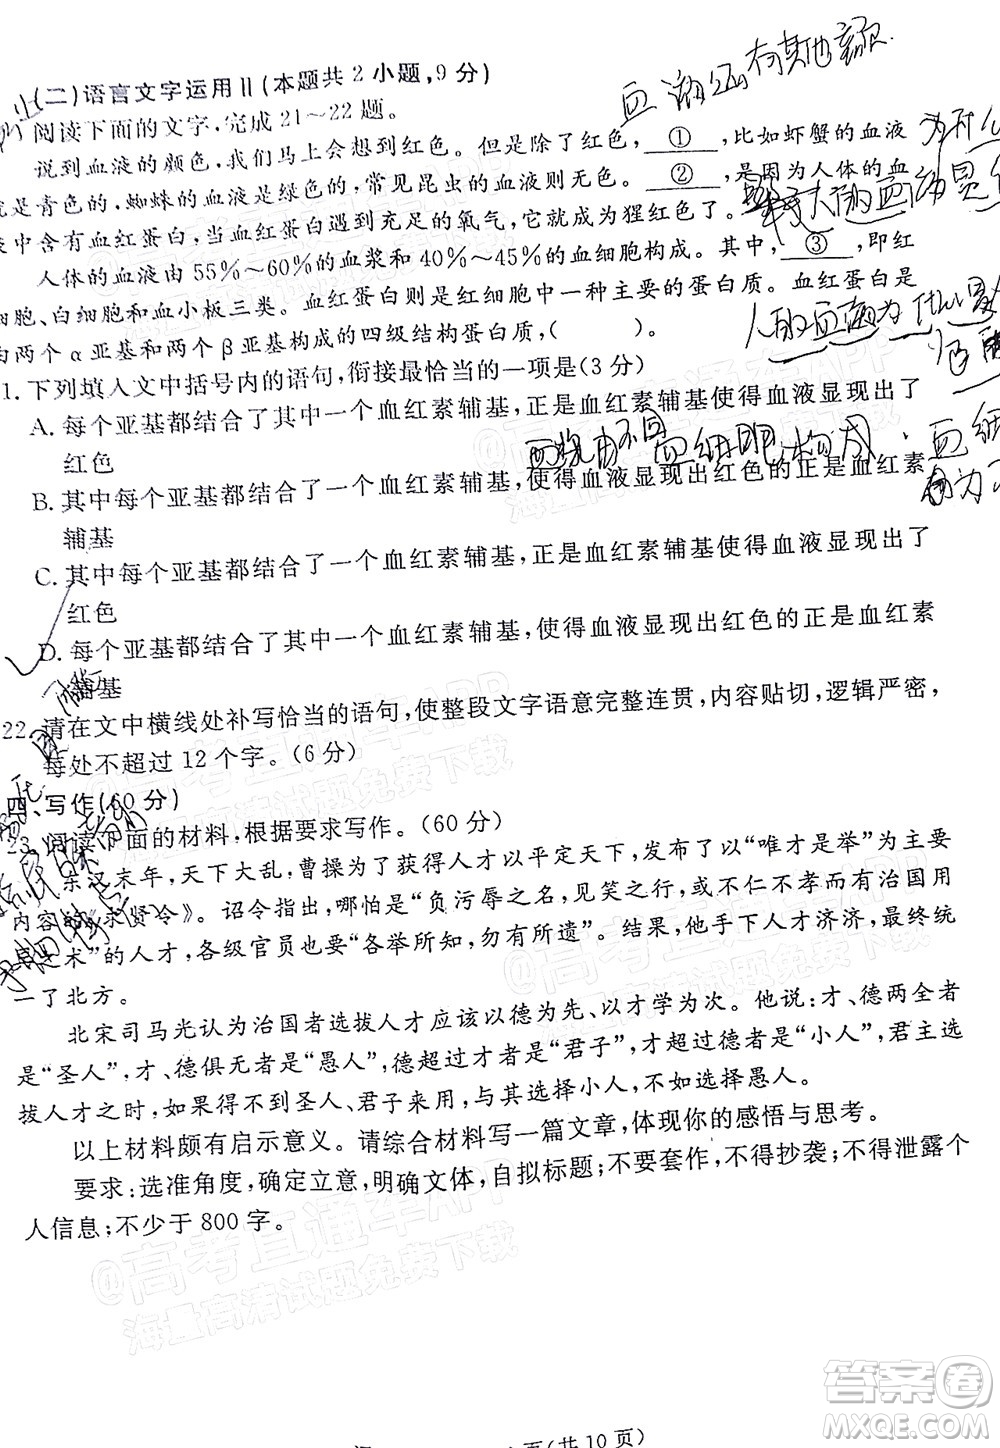 (二)语言文字运用Ⅱ(本题共2小题,9分)
阅读下面的文字,完成21～22题。
说到血液的颜色,我们马上会想到红色。但是,除了红色,①,比如虾蟹的血液
就是青色的,蜘蛛的血液是绿色的,常见昆虫的血液则无色。②,是因为人体的血
液中含有血红蛋白,当血红蛋白遇到充足的氧气,它就成为猩红色了。
人体的血液由55%～60%的血浆和40%～45%的血细胞构成。其中,③,即红
细胞、白细胞和血小板三类。血红蛋白则是红细胞中一种主要的蛋白质。血红蛋白是
由两个α亚基和两个β亚基构成的四级结构蛋白质,( )。
1. 下列填入文中括号内的语句,衔接最恰当的一项是(3分)
A. 每个亚基都结合了其中一个血红素辅基,正是血红素辅基使得血液显现出了
红色
B. 其中每个亚基都结合了一个血红素辅基,使得血液显现出红色的正是血红素
辅基
C. 其中每个亚基都结合了一个血红素辅基,正是血红素辅基使得血液显现出了
红色
D. 每个亚基都结合了其中一个血红素辅基,使得血液显现出红色的正是血红素
辅基
22. 请在文中横线处补写恰当的语句,使整段文字语意完整连贯,内容贴切,逻辑严密,
每处不超过12个字。(6分)
四、写作(60分)
23. 阅读下面的材料,根据要求写作。(60分)
东汉末年,天下大乱,曹操为了获得人才以平定天下,发布了以“唯才是举”为主要
内容的《求贤令》。诏令指出,哪怕是“负污辱之名,见笑之行,或不仁不孝而有治国用
兵之术”的人才,各级官员也要“各举所知,勿有所遗”。结果,他手下人才济济,最终统
一了北方。
北宋司马光认为治国者选拔人才应该以德为先、以才学为次。他说:才、德两全者
是“圣人”,才、德俱无者是“愚人”,德超过才者是“君子”,才超过德者是“小人”,君主选
拔人才之时,如果得不到圣人、君子来用,与其选择小人,不如选择愚人。
以上材料颇有启示意义。请综合材料写一篇文章,体现你的感悟与思考。
要求:选准角度,确定立意,明确文体,自拟标题;不要套作,不得抄袭;不得泄露个
人信息;不少于800字。
页(共10页)
血液还有其他颜色
为什么
人的血液为什么是
血浆由不同血细胞构成
@高考直通车APP
海量高清试题免费下载
答案圈
MXQE.COM